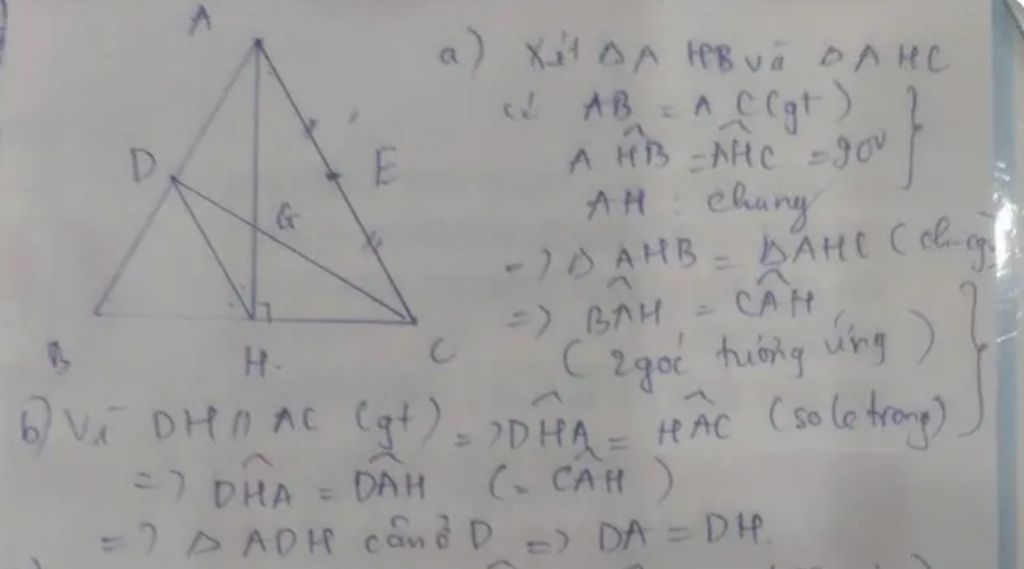 A
D
E
G
B
H.
C
a) Xét ΔA HB và ΔAHC
có AB = AC (gt)
AĤB = AĤC = 90°
AH : chung
=> ΔAHB = ΔAHC
=> BÂH = CÂH
(2góc tương ứng)
b) Vì DH // AC (gt) => DĤA = HÂC (so le trong)
=> DĤA = DÂH (= CÂH)
=> Δ ADH cân ở D => DA = DH.